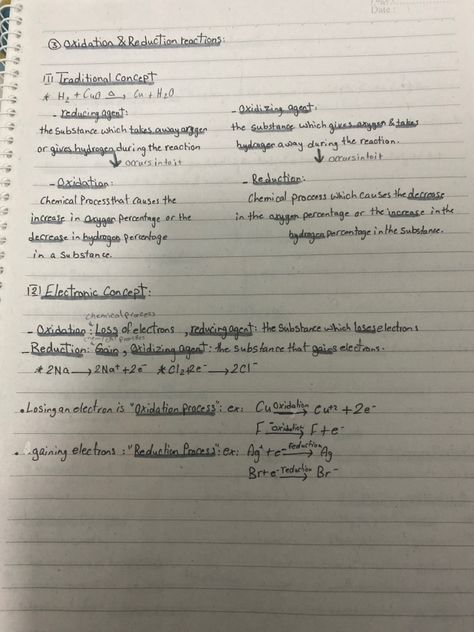 ③ Oxidation & Reduction reactions:
[1] Traditional Concept
* H₂ + CuO →Δ Cu + H₂O
- reducing agent:
the substance which takes away oxygen
or gives hydrogen during the reaction
↓ occurs in to it
- Oxidation:
Chemical Process that causes the
increase in oxygen percentage or the
decrease in hydrogen percentage
in a substance.
- Oxidizing agent:
the substance which gives oxygen & takes
hydrogen away during the reaction.
↓ occurs in to it
- Reduction:
Chemical process which causes the decrease
in the oxygen percentage or the increase in the
hydrogen percentage in the substance.
[2] Electronic Concept:
chemical process
- Oxidation: Loss of electrons, reducing agent: the substance which loses electrons
chemical process
- Reduction: Gain, Oxidizing agent: the substance that gains electrons.
* 2Na → 2Na⁺ + 2e⁻ * Cl₂ + 2e⁻ → 2Cl⁻
• Losing an electron is "Oxidation process": ex: Cu →oxidation Cu⁺² + 2e⁻
F⁻ →oxidation F + e⁻
• gaining electrons: "Reduction Process": ex: Ag⁺ + e⁻ →reduction Ag
Br + e⁻ →reduction Br⁻
Date: